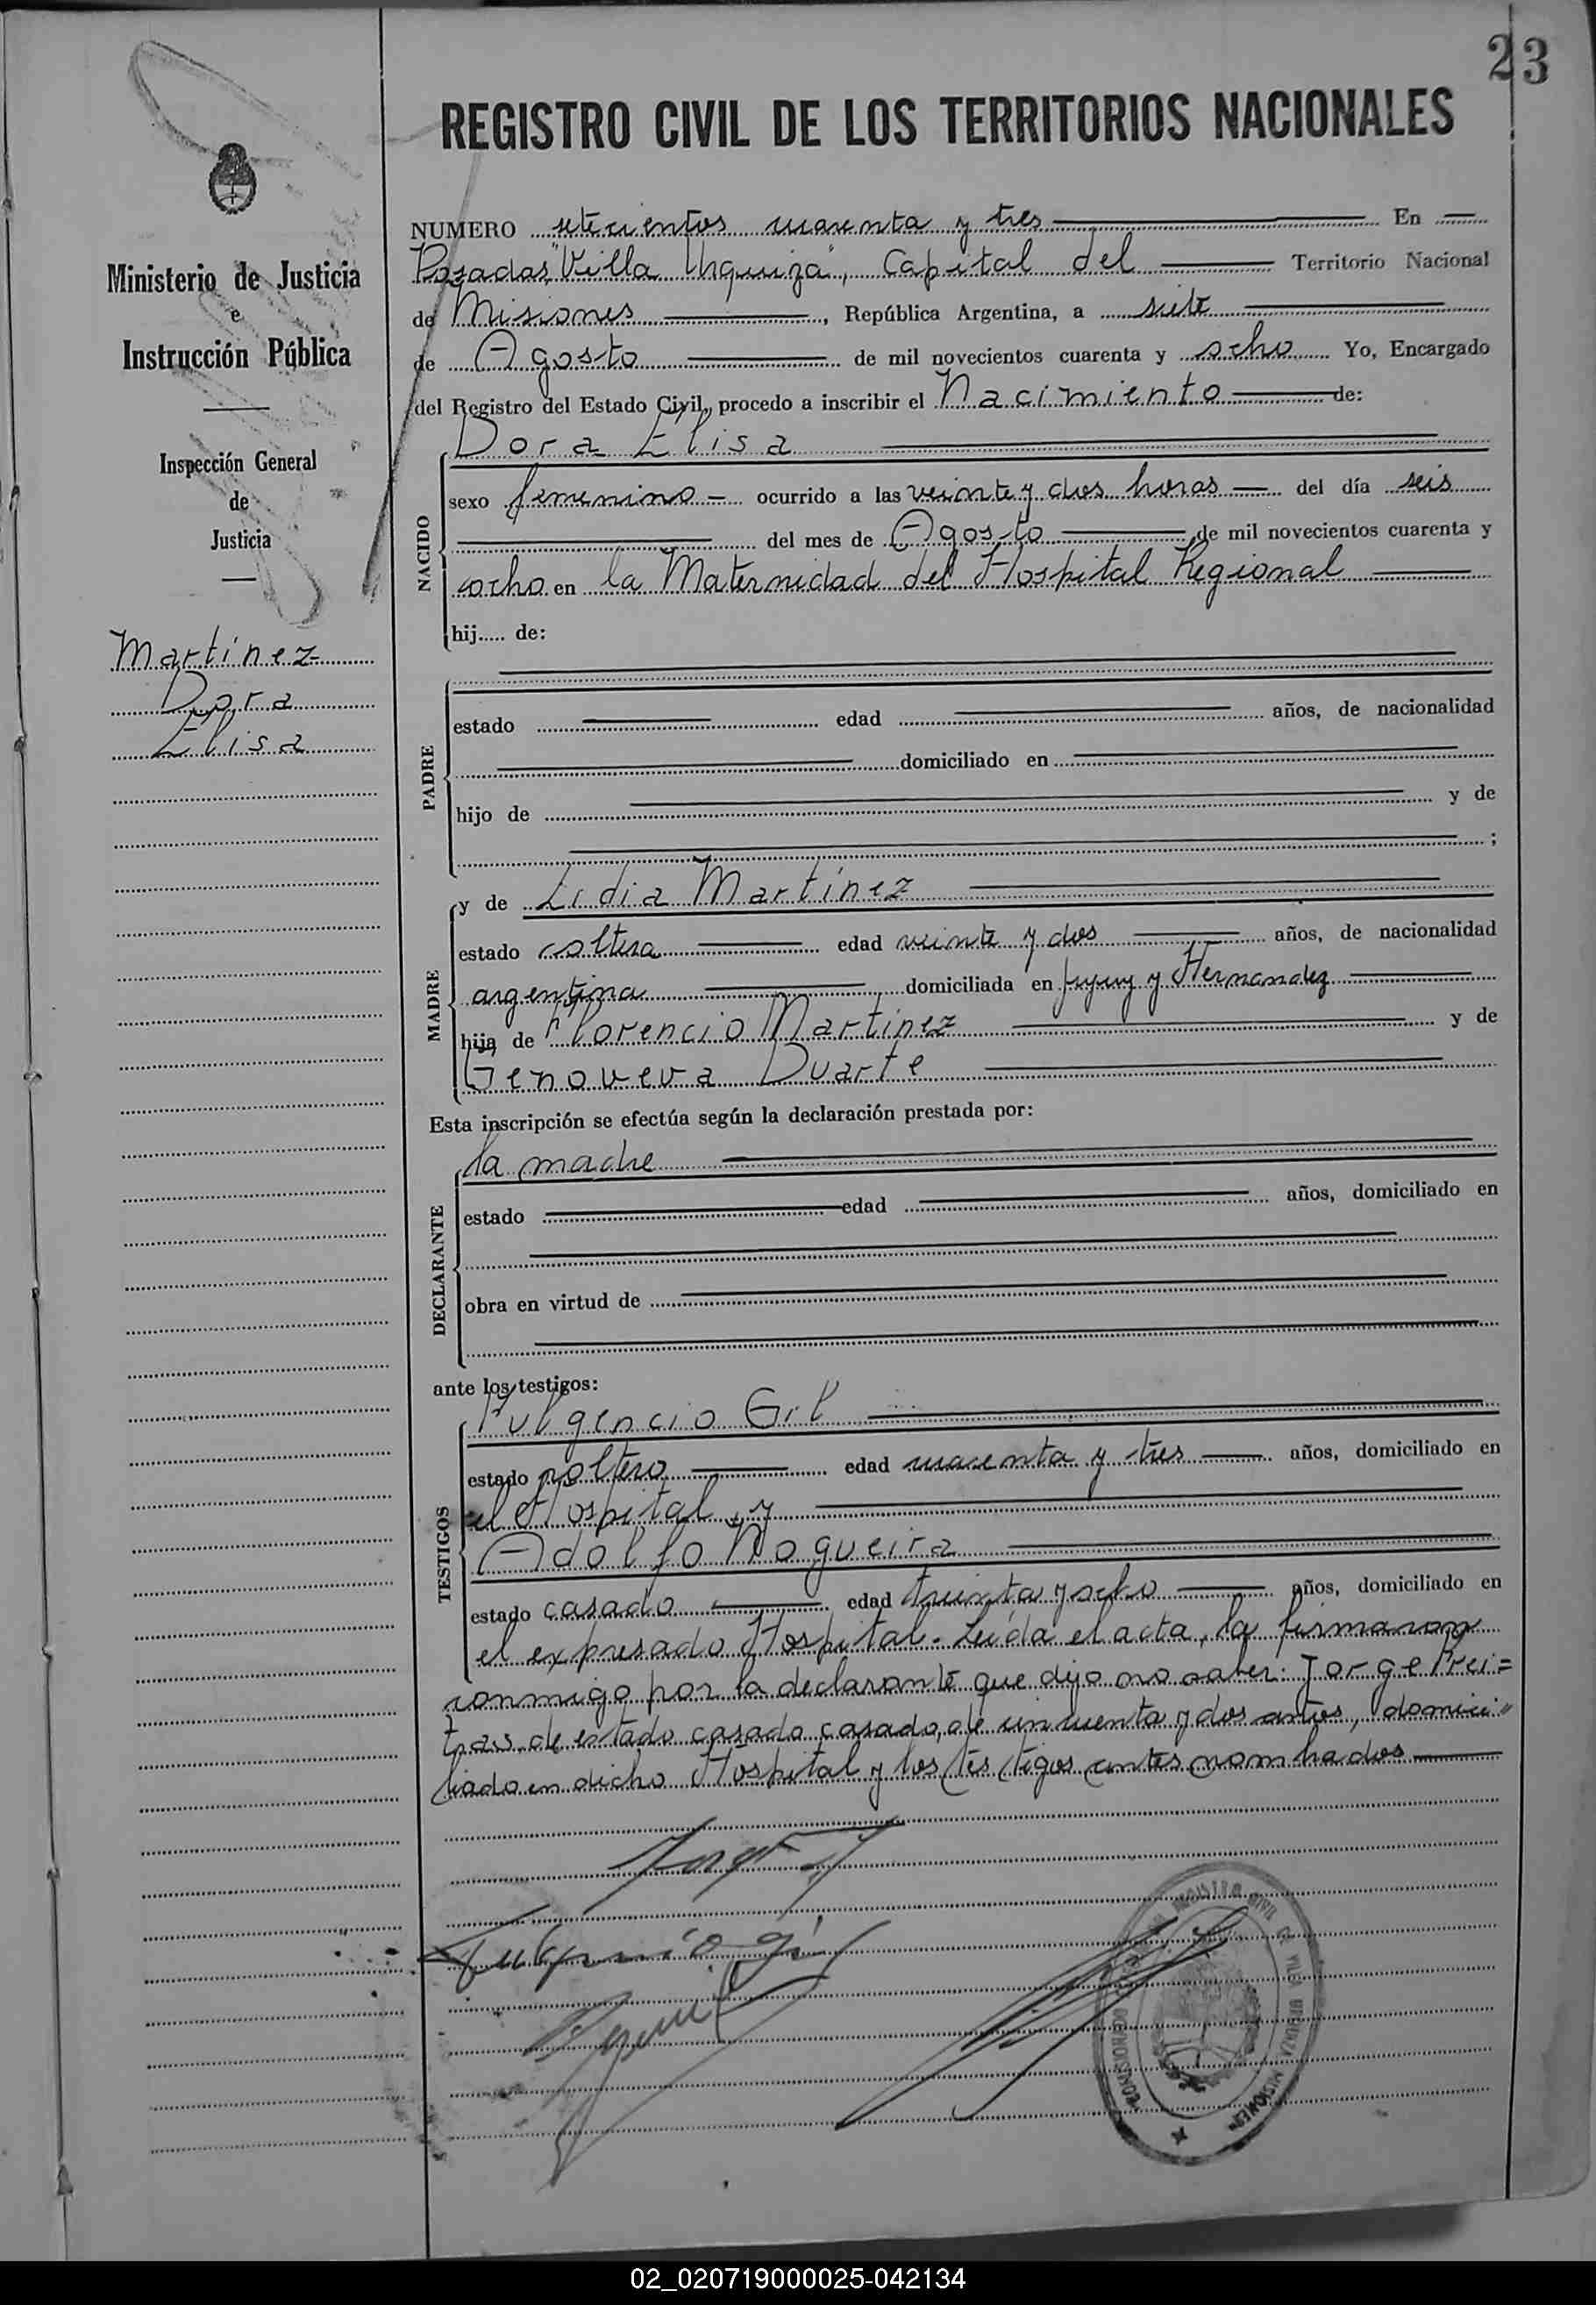 23
REGISTRO CIVIL DE LOS TERRITORIOS NACIONALES
Ministerio de Justicia
e
Instrucción Pública
Inspección General
de
Justicia
Martínez
Dora
Elisa
NUMERO setecientos cuarenta y tres En
Posadas, "Villa Urquiza", Capital del Territorio Nacional
de Misiones, República Argentina, a siete
de Agosto de mil novecientos cuarenta y ocho Yo, Encargado
del Registro del Estado Civil, procedo a inscribir el Nacimiento de:
Dora Elisa
NACIDO
sexo femenino ocurrido a las veinte y dos horas del día seis
del mes de Agosto de mil novecientos cuarenta y
ocho en la Maternidad del Hospital Regional
hij..... de:
PADRE
estado edad años, de nacionalidad
domiciliado en
hijo de y de
;
MADRE
y de Lidia Martínez
estado soltera edad veinte y dos años, de nacionalidad
argentina domiciliada en Jujuy y Hernandez
hija de Florencio Martínez y de
Genoveva Duarte
Esta inscripción se efectúa según la declaración prestada por:
DECLARANTE
la madre
estado edad años, domiciliado en
obra en virtud de
ante los testigos:
TESTIGOS
Fulgencio Gil
estado soltero edad cuarenta y tres años, domiciliado en
el Hospital y
Adolfo Nogueira
estado casado edad treinta y ocho años, domiciliado en
el expresado Hospital. Leída el acta, la firmaron
conmigo por la declarante que dijo no saber: Jorge Prei=
tas, de estado casado casado, de cincuenta y dos años, domici"
liado en dicho Hospital y los testigos antes nombrados
Fulgencio Gil
REGISTRO CIVIL DE VILLA URQUIZA MISIONES
02_020719000025-042134